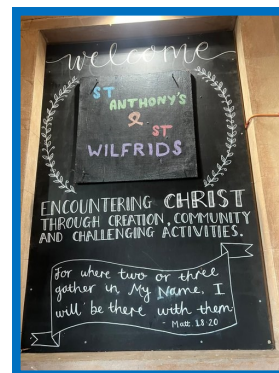 welcome
ST
ANTHONY'S
&
ST
WILFRIDS
ENCOUNTERING CHRIST
THROUGH CREATION, COMMUNITY
AND CHALLENGING ACTIVITIES.
for where two or three
gather in My Name, I
will be there with them
- Matt. 18:20